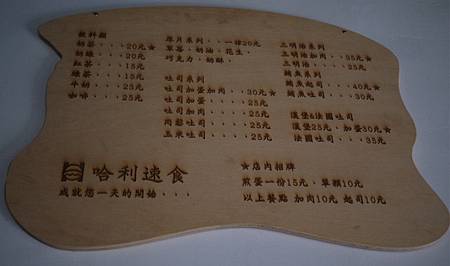 飲料類
奶茶...20元★
奶綠...20元
紅茶...15元
綠茶...15元
牛奶...25元
咖啡...25元
厚片系列...一律20元
草莓、奶油、花生、
巧克力、奶酥、
吐司系列
吐司加蛋加肉...30元★
吐司加蛋....25元
吐司加肉....25元
肉鬆吐司....25元
玉米吐司....25元
三明治系列
三明治加肉...35元★
三明治....25元
鮪魚系列
鮪魚起司....40元★
鮪魚吐司....30元
漢堡&法國吐司
漢堡25元、加蛋30元★
法國吐司....35元
哈利速食
成就您一天的開始...
★店內招牌
煎蛋一份15元、單顆10元
以上餐點 加肉10元 起司10元